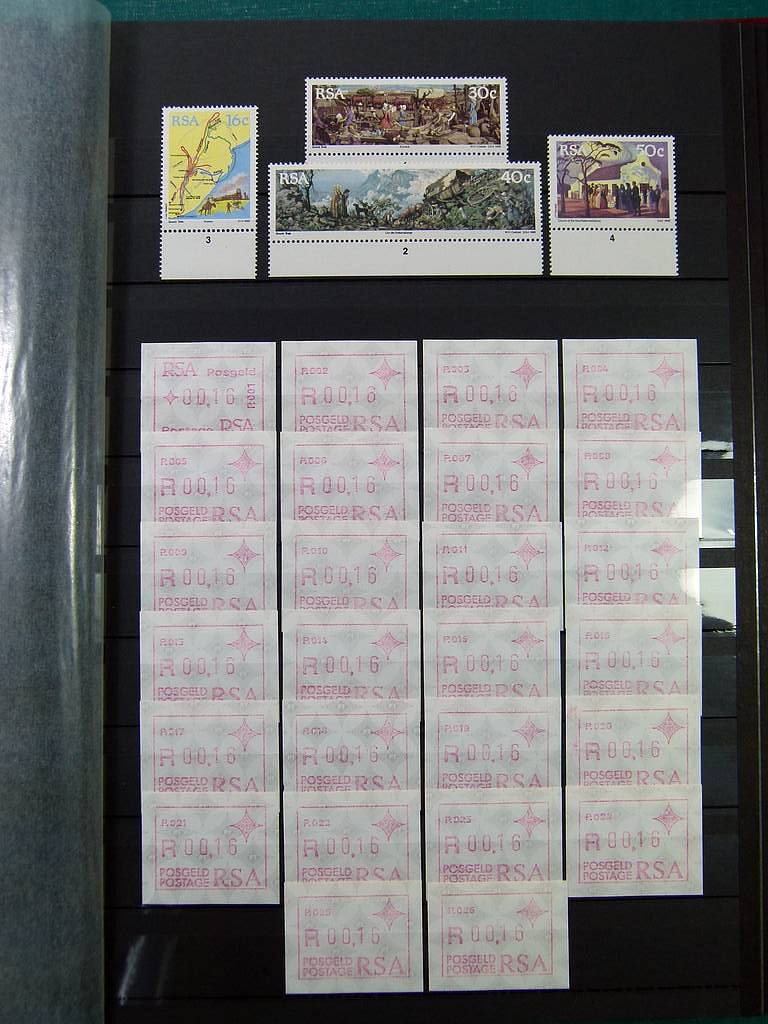 RSA 16c
3
RSA 30c
RSA 40c
2
RSA 50c
4
RSA Posgeld
00,16 P.001
Postage RSA
P.002
R00,16
POSGELD
POSTAGE RSA
P.003
R00,16
POSGELD
POSTAGE RSA
P.004
R00,16
POSGELD
POSTAGE RSA
P.005
R00,16
POSGELD RSA
P.006
R00,16
POSGELD RSA
P.007
R00,16
POSGELD RSA
P.008
R00,16
POSGELD RSA
P.009
R00,16
POSGELD RSA
P.010
R00,16
POSGELD RSA
P.011
R00,16
POSGELD RSA
P.012
R00,16
POSGELD RSA
P.013
R00,16
POSGELD
POSTAGE RSA
P.014
R00,16
POSGELD
POSTAGE RSA
P.015
R00,16
POSGELD
POSTAGE RSA
P.016
R00,16
POSGELD
POSTAGE RSA
P.017
R00,16
POSGELD
POSTAGE RSA
P.018
R00,16
POSGELD
POSTAGE RSA
P.019
R00,16
POSGELD
POSTAGE RSA
P.020
R00,16
POSGELD
POSTAGE RSA
P.021
R00,16
POSGELD
POSTAGE RSA
P.022
R00,16
POSGELD
POSTAGE RSA
P.023
R00,16
POSGELD
POSTAGE RSA
P.024
R00,16
POSGELD
POSTAGE RSA
P.025
R00,16
POSGELD
POSTAGE RSA
P.026
R00,16
POSGELD
POSTAGE RSA